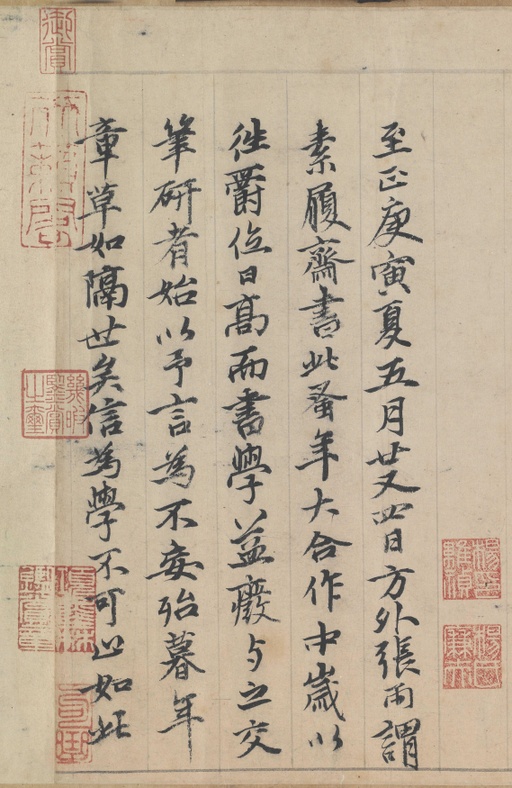 至正庚寅夏五月廿又四日方外張雨謂
素履齋書此蚤年大合作中歲以
往爵位日高而書學益廢与之交
筆研者始以予言為不妄殆暮年
章草如隔世矣信為學不可止如此
御賞